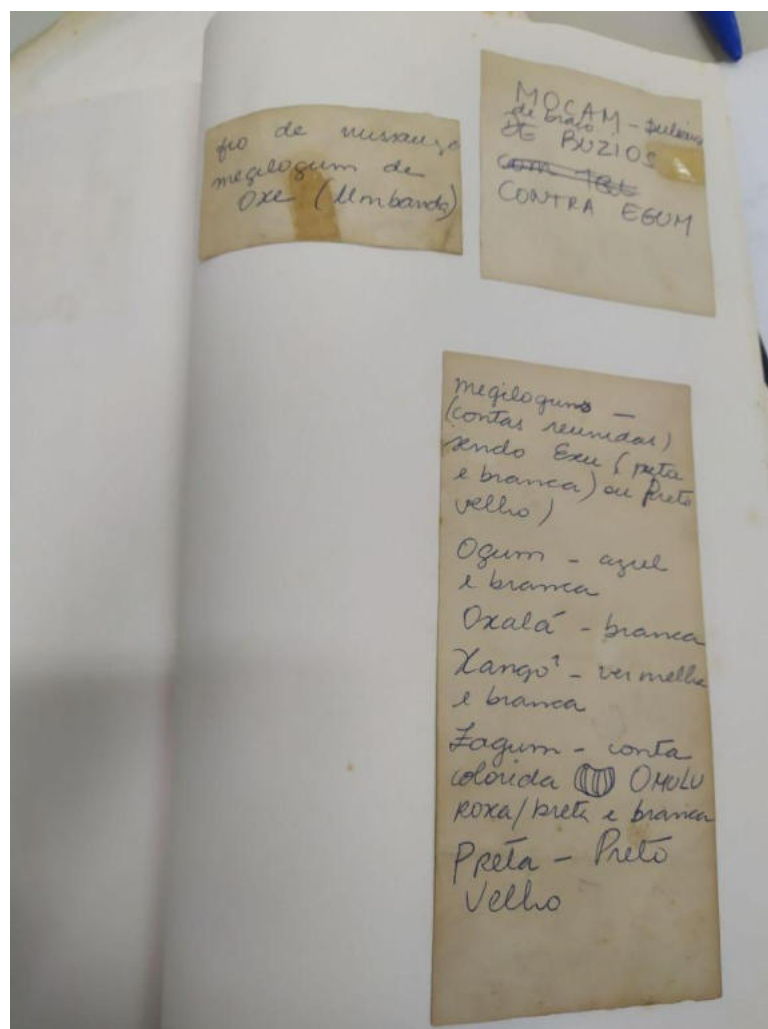 fio de missanga
megilogum de
Oxe (Umbanda)
MOCAM - pulseira
de braço
DE BUZIOS
CONTRA EGUM
megilogum —
(contas reunidas)
sendo Exu (preta
e branca) ou Preto
velho)
Ogum - azul
e branca
Oxalá - branca
Xangô - vermelha
e branca
Zagum - conta
colorida OMULU
ROXA/preta e branca
Preta - Preto
Velho